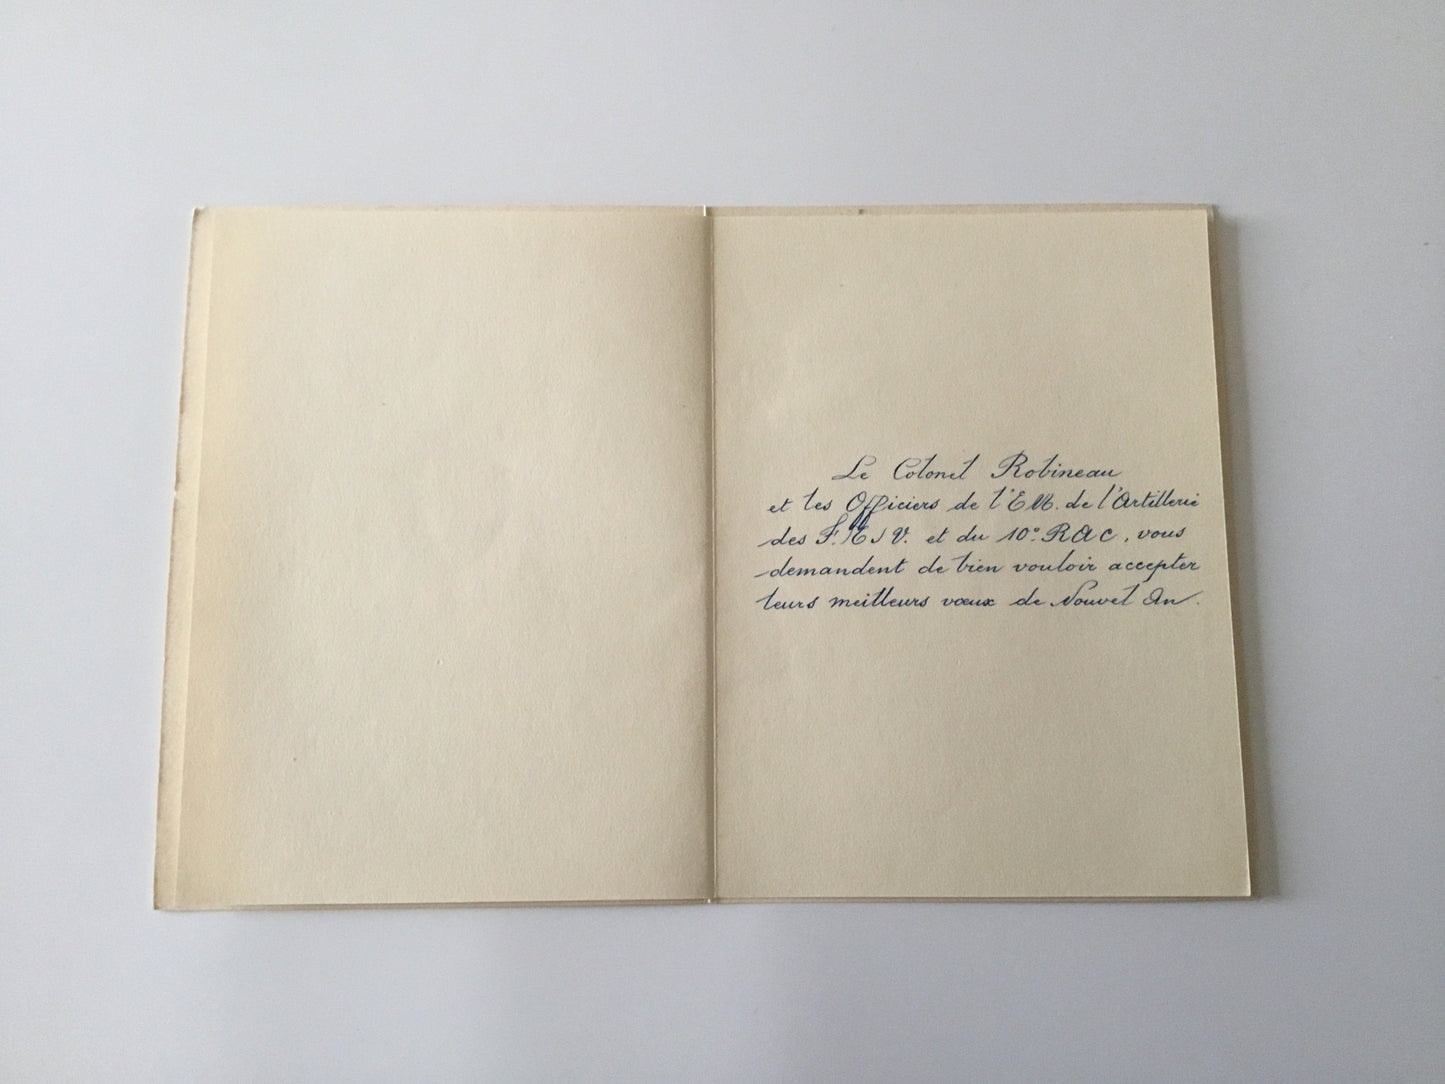 Le Colonel Robineau
et les Officiers de l'E.M. de l'Artillerie
des F.T.S.V. et du 10° R A C, vous
demandent de bien vouloir accepter
leurs meilleurs vœux de Nouvel An.